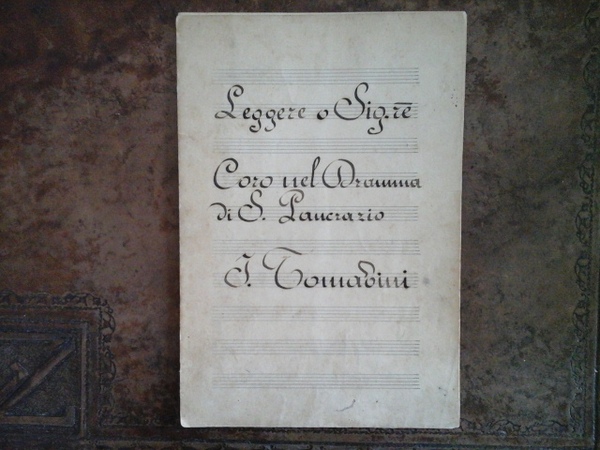 Leggere o Sig.re
Coro nel Dramma
di S. Pancrazio
J. Tomadini